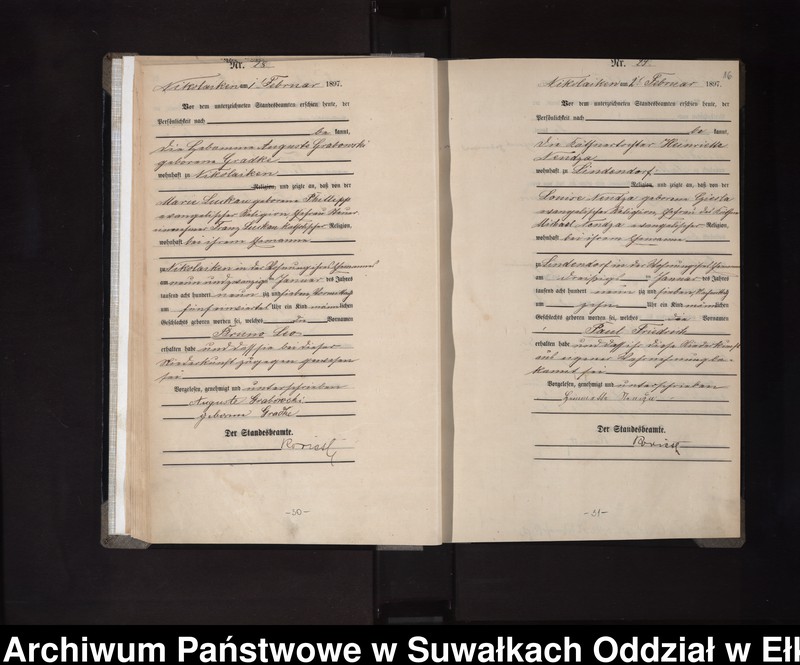 Nr. 28.
Nikolaiken am 1 Februar 1897.
Vor dem unterzeichneten Standesbeamten erschien heute, der
Persönlichkeit nach
be kannt,
die Hebamme Auguste Grabowski
geborene Gradtke
wohnhaft zu Nikolaiken
Religion, und zeigte an, daß von der
Marie Luckau geborene
evangelischer Religion Ehefrau
Franz Luckau katholischer Religion,
wohnhaft bei ihrem Ehemanne
zu Nikolaiken in der Wohnung ihres Ehemannes
am neun und zwanzigsten Januar des Jahres
tausend acht hundert neun zig und sieben, Vormittags
um fünf Uhr ein Kind männlichen
Geschlechts geboren worden sei, welches die Vornamen
Bruno Leo
erhalten habe und daß sie bei dieser
Niederkunft zugegen gewesen
sei
Vorgelesen, genehmigt und unterschrieben
Auguste Grabowski
geborene Gradtke
Der Standesbeamte.
-30-
Nr. 29.
16
Nikolaiken am 2 Februar 1897.
Vor dem unterzeichneten Standesbeamten erschien heute, der
Persönlichkeit nach
be kannt,
die Käthnertochter Henriette
Nendza
wohnhaft zu Lindendorf
Religion, und zeigte an, daß von der
Louise Nendza geborenen
evangelischer Religion, Ehefrau des Käthner
Michael Nendza evangelischer Religion,
wohnhaft bei ihrem Ehemanne
zu Lindendorf in der Wohnung
am dreißigsten Januar des Jahres
tausend acht hundert neun zig und sieben, Vormittags
um zehn Uhr ein Kind männlichen
Geschlechts geboren worden sei, welches die Vornamen
Paul Friedrich
erhalten habe und daß ihr diese Niederkunft
aus eigener Wahrnehmung be
kannt sei
Vorgelesen, genehmigt und unterschrieben
Henriette Nendza
Der Standesbeamte.
-31-
Archiwum Państwowe w Suwałkach Oddział w Ełk